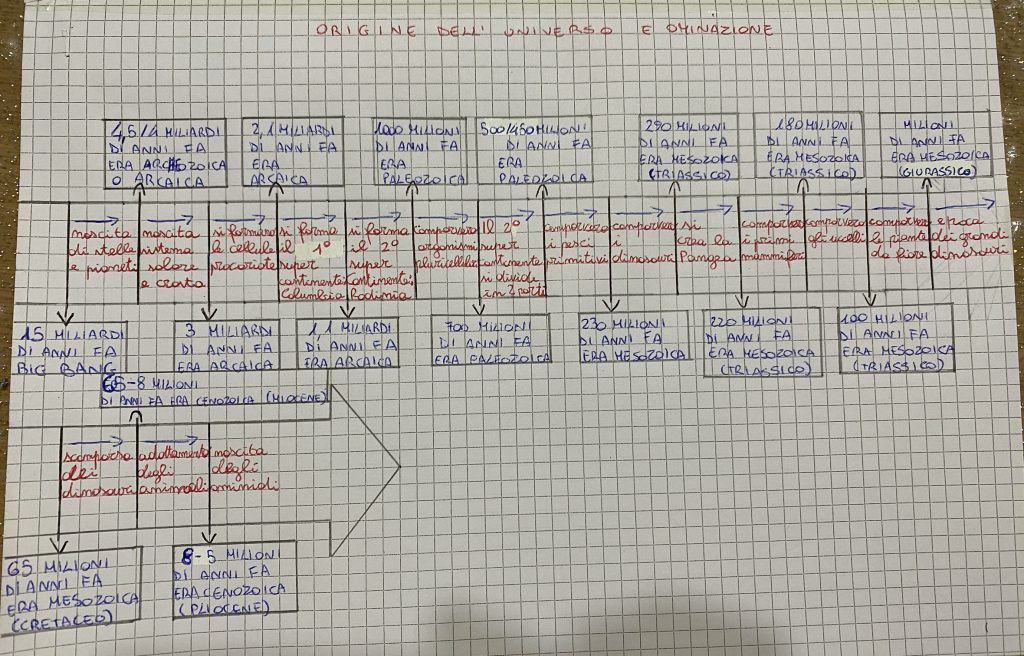 ORIGINE DELL'UNIVERSO E OMINAZIONE
4,5/4 MILIARDI
DI ANNI FA
ERA ARCHEOZOICA
O ARCAICA
2,1 MILIARDI
DI ANNI FA
ERA
ARCAICA
1000 MILIONI
DI ANNI FA
ERA
PALEOZOICA
500/450 MILIONI
DI ANNI FA
ERA
PALEOZOICA
290 MILIONI
DI ANNI FA
ERA MESOZOICA
(TRIASSICO)
180 MILIONI
DI ANNI FA
ERA MESOZOICA
(TRIASSICO)
MILIONI
DI ANNI FA
ERA MESOZOICA
(GIURASSICO)
nascita
di stelle
e pianeti
nascita
sistema
solare
e crosta
si formano
le cellule
procariote
si forma
il 1°
super
continente:
Columbia
si forma
il 2°
super
continente:
Rodinia
comparvero
organismi
pluricellulari
Il 2°
super
continente
si divide
in 2 parti
comparvero
i pesci
primitivi
comparvero
i
dinosauri
si
crea la
Pangea
comparvero
i primi
mammiferi
comparvero
gli uccelli
comparvero
le piante
da fiore
epoca
dei grandi
dinosauri
15 MILIARDI
DI ANNI FA
BIG BANG
3 MILIARDI
DI ANNI FA
ERA ARCAICA
1,1 MILIARDI
DI ANNI FA
ERA ARCAICA
700 MILIONI
DI ANNI FA
ERA PALEOZOICA
230 MILIONI
DI ANNI FA
ERA MESOZOICA
220 MILIONI
DI ANNI FA
ERA MESOZOICA
(TRIASSICO)
100 MILIONI
DI ANNI FA
ERA MESOZOICA
(TRIASSICO)
65-8 MILIONI
DI ANNI FA ERA CENOZOICA (MIOCENE)
scomparsa
dei
dinosauri
adattamento
degli
animali
nascita
degli
ominidi
65 MILIONI
DI ANNI FA
ERA MESOZOICA
(CRETACEO)
8-5 MILIONI
DI ANNI FA
ERA CENOZOICA
(PLIOCENE)